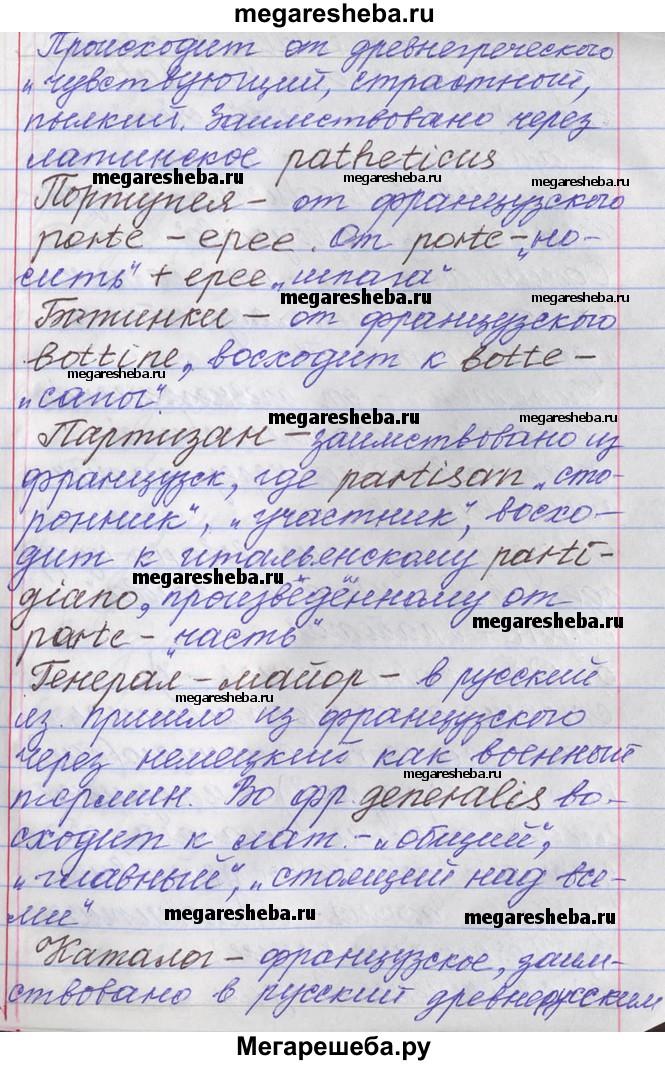 megaresheba.ru
Происходит от древнегреческого
„чувствующий, страстный,
пылкий. Заимствовано через
латинское patheticus
megaresheba.ru megaresheba.ru
Портупея – от французского
porte – epee. От porte – „но-
сить“ + epee „шпага“
megaresheba.ru
Ботинки – от французского
bottine, восходит к botte –
megaresheba.ru megaresheba.ru
„сапог“
megaresheba.ru
Партизан – заимствовано из
французск, где partisan „сто-
ронник“, „участник“, восхо-
дит к итальенскому parti-
megaresheba.ru
giano, произведённому от
megaresheba.ru
parte – „часть“
Генерал – майор – в русский
megaresheba.ru
яз. пришло из французского
через немецкий как военный
megaresheba.ru
термин. Во фр. generalis во-
сходит к лат. – „общий“,
„главный“, „стоящий над все-
ми“
megaresheba.ru megaresheba.ru
Каталог – французское, заим-
ствовано в русский древнерусским
Мегарешеба.ру